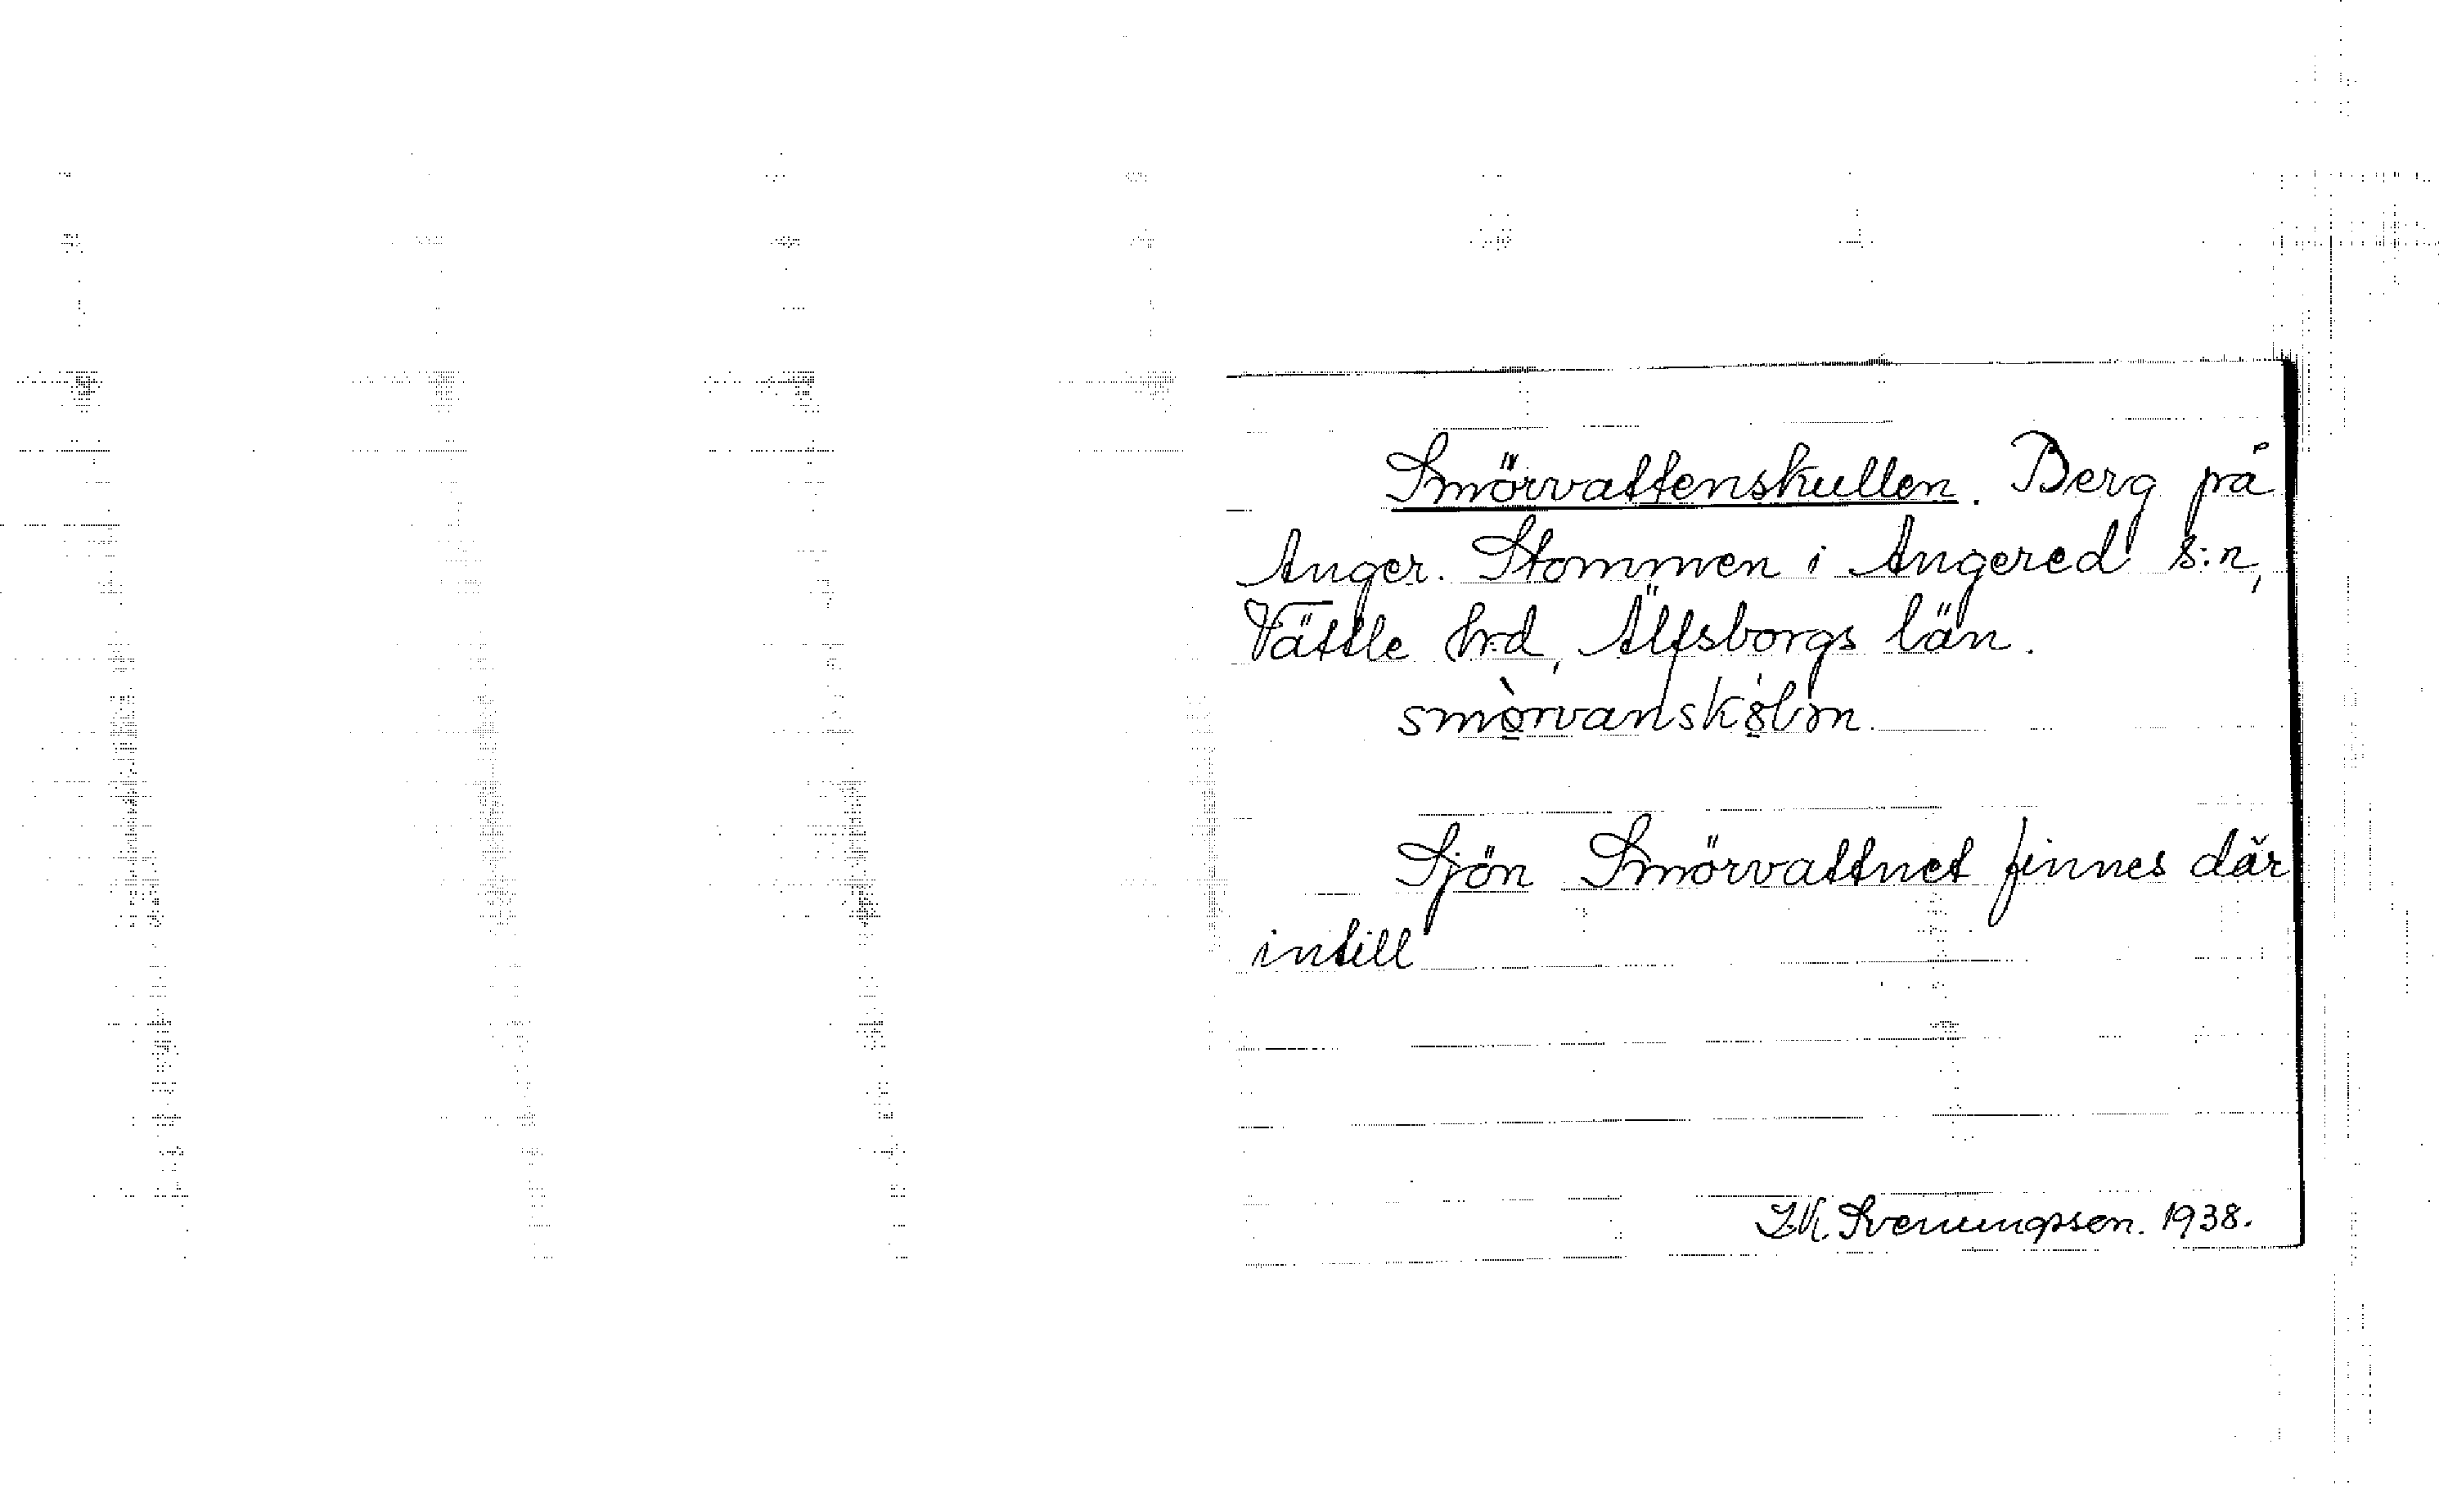 Smörvattenskullen. Berg på
Anger. Stommen i Angered s:n,
Vättle hd, Älfsborgs län.
Sjön Smörvattnet finnes där
intill
Svenungsson. 1938.